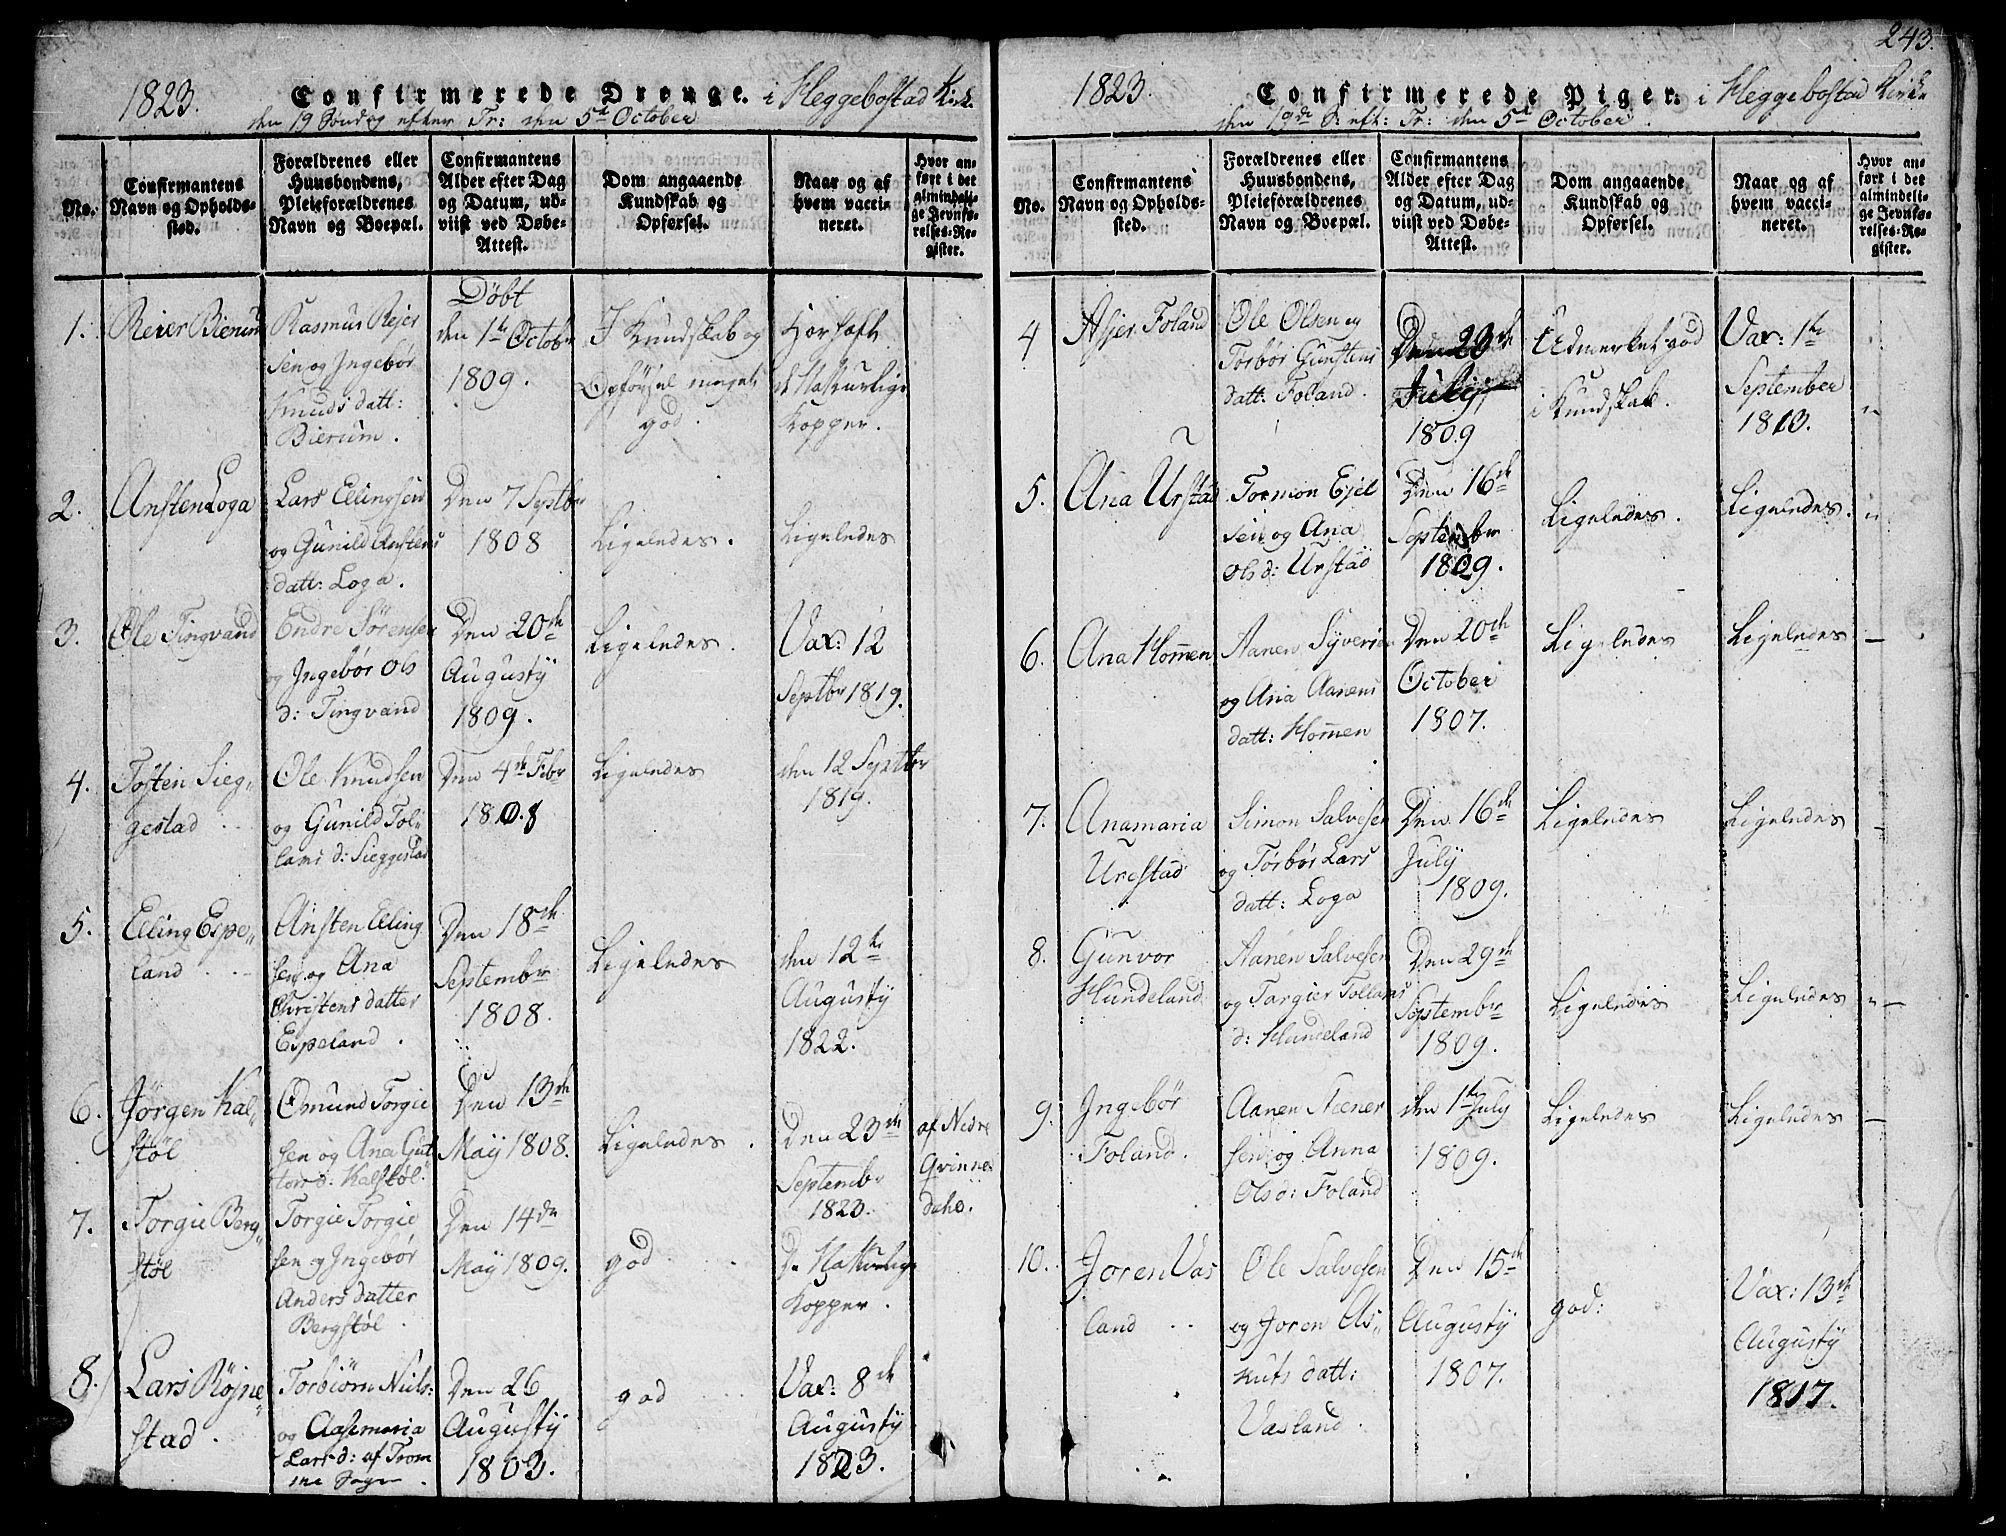 1823. Confirmerede Drenge. i Heggebostad Kirke
den 19 Søndag efter Tr: den 5te October
No.
Confirmantens
Navn og Opholds-
sted.
Forældrenes eller
Huusbondens,
Pleieforældrenes
Navn og Boepæl.
Confirmantens
Alder efter Dag
og Datum, ud-
viist ved Døbe-
Attest.
Dom angaaende
Kundskab og
Opførsel.
Naar og af
hvem vacci-
neret.
Hvor an-
ført i det
almindeli-
ge Jevnfø-
relses-Re-
gister.
1.
Reier Bierum
Rasmus Rejer
sen og Ingebør
Knuds datt:
Bierum.
Døbt
den 1te Octobr
1809.
I Kundskab og
Opførsel meget
god.
Har haft
de Naturlige
Kopper.
2.
Ansten Loga
Lars Ellingsen
og Gunild Anstens
datt: Loga.
Den 7 Septbr
1808
Ligeledes.
Ligeledes
3.
Ole Tingvand
Endre Sørensen
og Ingebør Ols
d: Tingvand
Den 20de
Augusty
1809.
Ligeledes.
Vax: 12
Septbr 1819.
4.
Tosten Sieg„
gestad
Ole Knudsen
og Gunild Tol„
lams d: Sieggestad
Den 4de Febr
1808
Ligeledes
den 12 Septbr
1819.
5.
Elling Espe„
land
Ansten Elling
sen og Ana
Christens datter
Espeland.
Den 18de
Septembr
1808.
Ligeledes
den 12te
Augusty
1822.
6.
Jørgen Kal„
støl
Omund Torgie
sen og Ana Gut
torms d: Kalstøl.
Den 13de
May 1808.
Ligeledes.
Den 23de
Septembr
1823.
af Nedre
Qvinnes
dahl.
7.
Torgie Berg„
støl
Torgie Torgie
sen og Ingebør
Anders datter
Bergstøl.
Den 14de
May 1809.
god
De Naturlige
Kopper.
8.
Lars Røjne„
stad.
Torbiørn Niels:
og Aasemaria
Lars d: af Trom
me Sogn.
Den 26
Augusty
1803.
god
Vax: 8de
Augusty
1823.
243.
1823. Confirmerede Piger. i Heggebostad Kirke
den 19de S: eft: Tr: den 5te October.
No.
Confirmantens
Navn og Opholds-
sted.
Forældrenes eller
Huusbondens,
Pleieforældrenes
Navn og Boepæl.
Confirmantens
Alder efter Dag
og Datum, ud-
viist ved Døbe-
Attest.
Dom angaaende
Kundskab og
Opførsel.
Naar og af
hvem vacci-
neret.
Hvor an-
ført i det
almindeli-
ge Jevnfø-
relses-Re-
gister.
4
Asjer Foland
Ole Olsen og
Torbør Gunstens
datt: Foland.
Den 23de
July
1809
Udmerket god
i Kundskab.
Vax: 1te
September
1813.
5.
Ana Urstad
Tormon Ejel
sen og Ana
Ols d: Urstad
Den 16de
Septembr
1809.
Ligeledes.
Ligeledes.
6.
Ana Homen
Aanen Syversen
og Ana Aanens
datt: Homen
Den 20de
October
1807.
Ligeledes
Ligeledes
7.
Anamaria
Urestad
Simon Salvesen
og Torbør Lars
datt: Loga
Den 16de
July
1809.
Ligeledes
Ligeledes
8.
Gunvor
Hundeland
Aanen Salvesen
og Targier Tollams
d: Hundeland
Den 29de
Septembr
1809.
Ligeledes
Ligeledes
9.
Ingebør
Foland.
Aanen Steener
sen og Anna
Ols d: Foland
den 1te July
1809.
Ligeledes
Ligeledes
10.
Joren Vas
land
Ole Salvesen
og Joren As„
kuts datt:
Vasland
Den 15de
Augusty
1807.
god:
Vax: 13de
Augusty
1817.